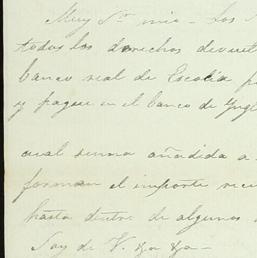 Muy Sr. mio - Los
todos los derechos
banco real de Escocia
y pague en el banco de
cual suma añadida a
forman el importe
hasta dentro de algunos
Soy de V. &a &a -